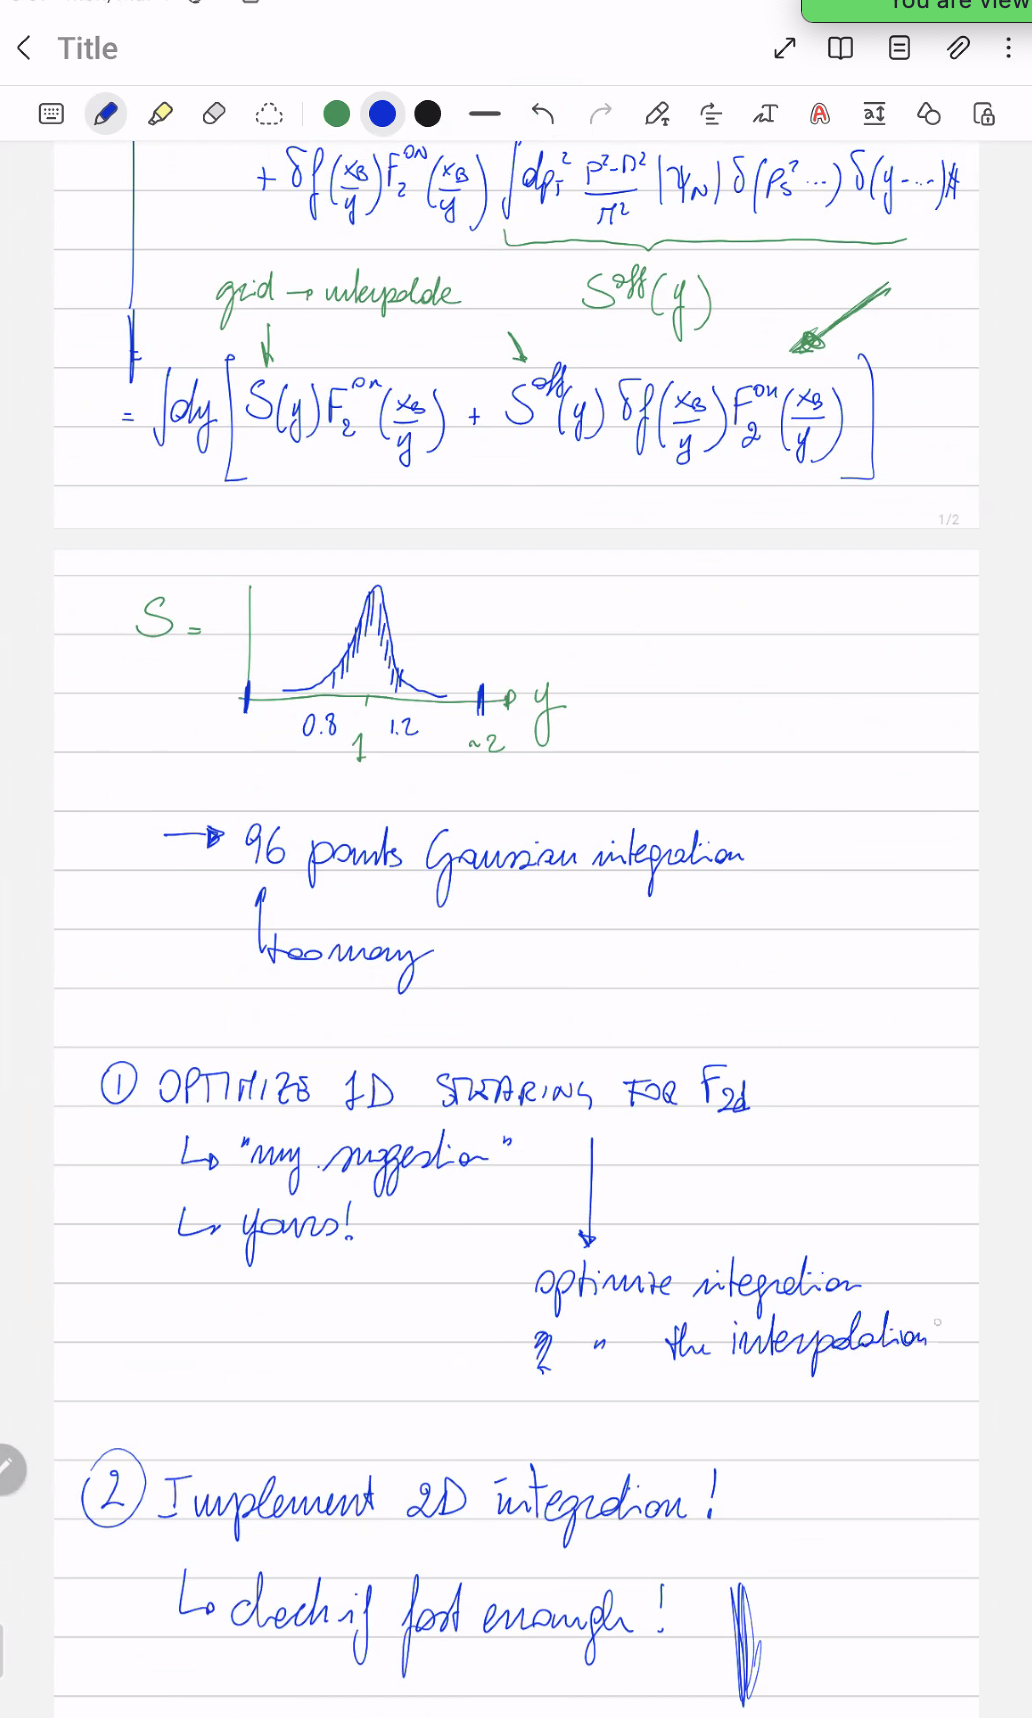 You are view
Title
+ δf(x_B/y) F_2^{ON}(x_B/y) ∫dp_T^2 (P^2-M^2)/M^2 |ψ_N| δ(p_S^2 ...) δ(y-...)
grid → interpolate S^{off}(y)
= ∫dy [S(y) F_2^{on}(x_B/y) + S^{off}(y) δf(x_B/y) F_2^{on}(x_B/y)]
1/2
S =
0.8 1 1.2 ~2 y
→ 96 points Gaussian integration
too many
① OPTIMIZE 1D SMEARING FOR F_{2d}
↳ "my suggestion"
↳ yours!
optimize integration
" the interpolation
② Implement 2D integration!
↳ check if fast enough!